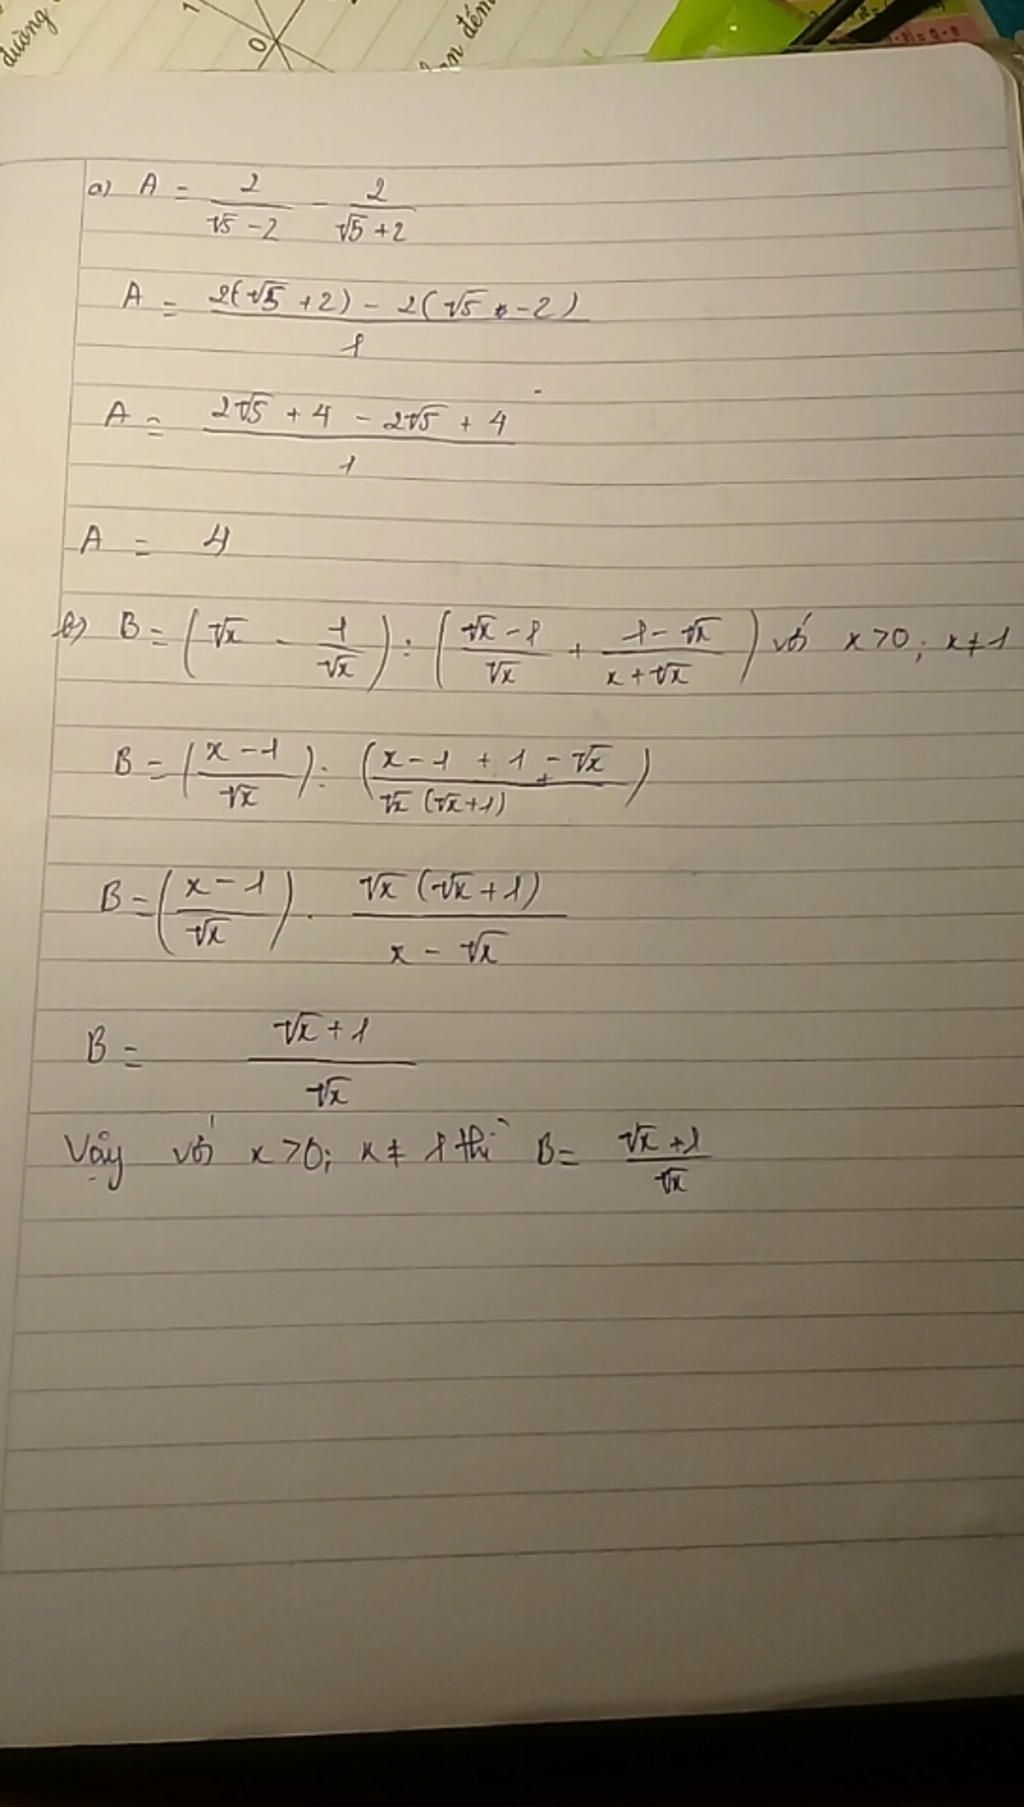 đường
1
0
đếm
a) A = 2/(√5 - 2) - 2/(√5 + 2)
A = (2(√5 + 2) - 2(√5 - 2))/1
A = (2√5 + 4 - 2√5 + 4)/1
A = 4
b) B = (√x - 1/√x) : ((√x - 1)/√x + (1 - √x)/(x + √x)) với x > 0; x ≠ 1
B = ((x - 1)/√x) : ((x - 1 + 1 - √x)/(√x (√x + 1)))
B = ((x - 1)/√x) . (√x (√x + 1))/(x - √x)
B = (√x + 1)/√x
Vậy với x > 0; x ≠ 1 thì B = (√x + 1)/√x